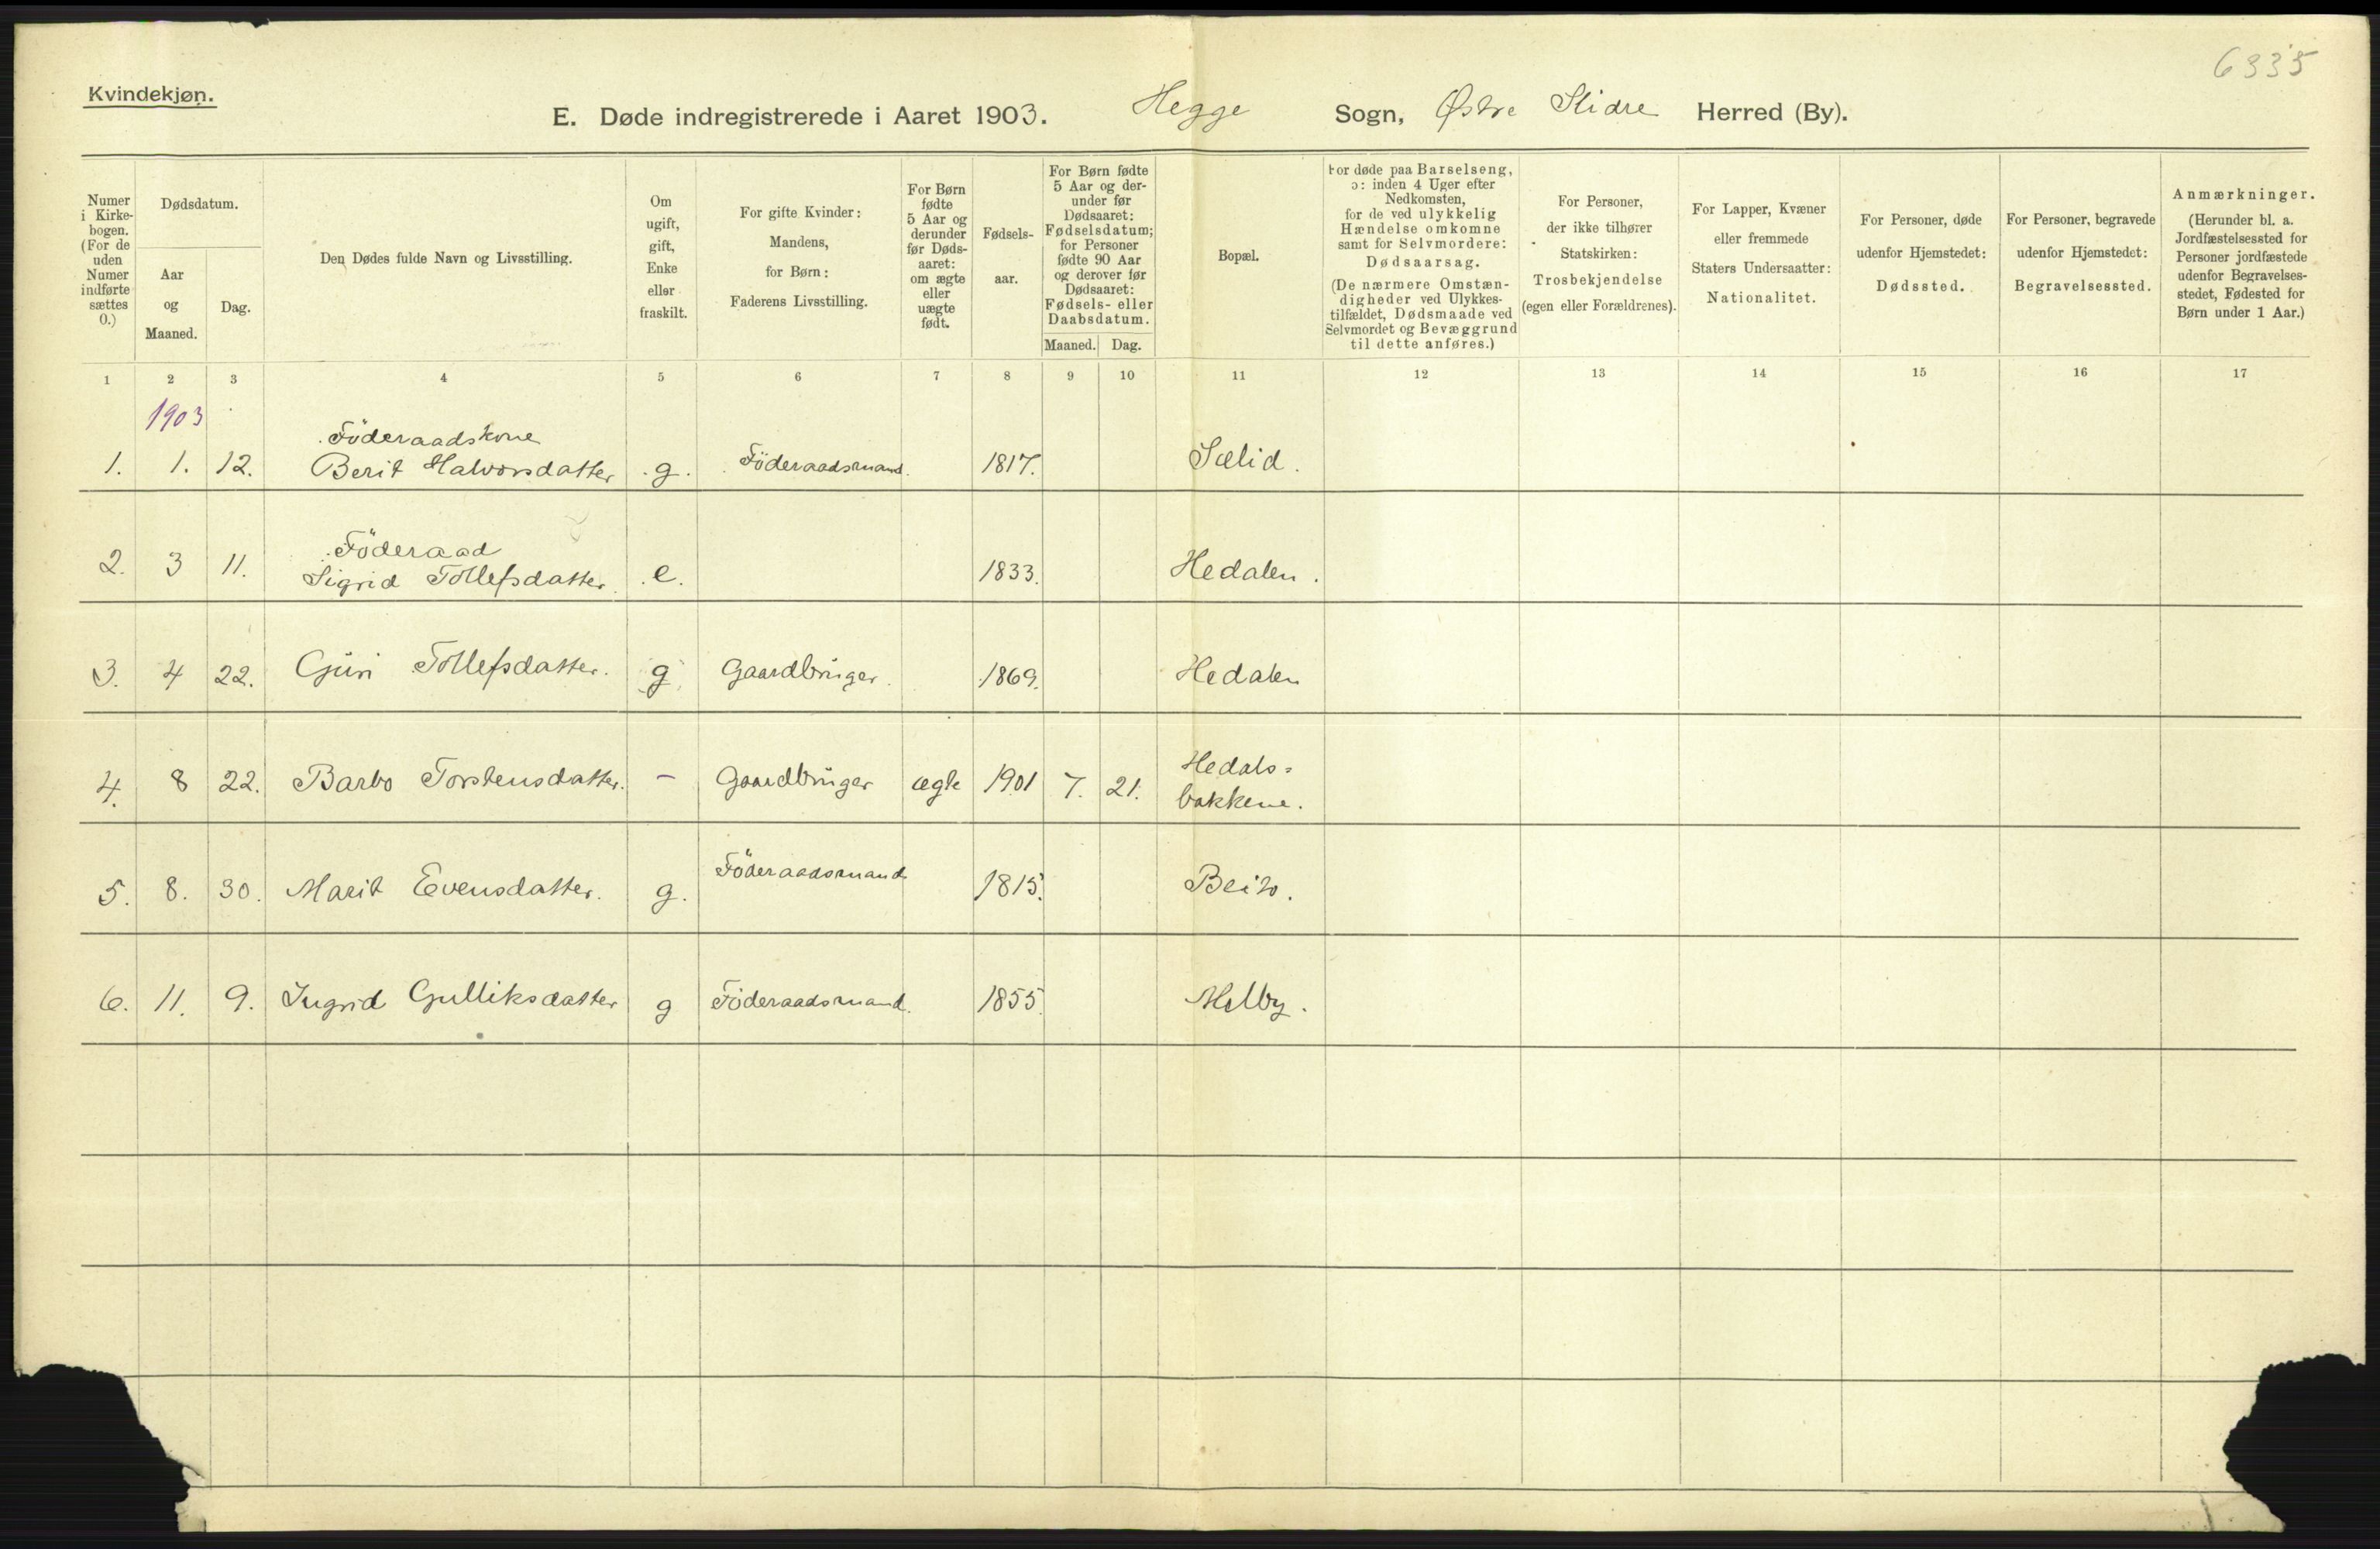 6335
Kvindekjøn.
E. Døde indregistrerede i Aaret 1903. Hegge Sogn, Østre Slidre Herred (By).
Numer
i Kirke-
bogen.
(For de
uden
Numer
indførte
sættes
0.)
Dødsdatum.
Aar
og
Maaned.
Dag.
Den Dødes fulde Navn og Livsstilling.
Om
ugift,
gift,
Enke
eller
fraskilt.
For gifte Kvinder:
Mandens,
for Børn:
Faderens Livsstilling.
For Børn
fødte
5 Aar og
derunder
før Døds-
aaret:
om ægte
eller
uægte
født.
Fødsels-
aar.
For Børn fødte
5 Aar og der-
under før
Dødsaaret:
Fødselsdatum;
for Personer
fødte 90 Aar
og derover før
Dødsaaret:
Fødsels- eller
Daabsdatum.
Maaned. Dag.
Bopæl.
For døde paa Barselseng,
ɔ: inden 4 Uger efter
Nedkomsten,
for de ved ulykkelig
Hændelse omkomne
samt for Selvmordere:
Dødsaarsag.
(De nærmere Omstæn-
digheder ved Ulykkes-
tilfældet, Dødsmaade ved
Selvmordet og Bevæggrund
til dette anføres.)
For Personer,
der ikke tilhører
Statskirken:
Trosbekjendelse
(egen eller Forældrenes).
For Lapper, Kvæner
eller fremmede
Staters Undersaatter:
Nationalitet.
For Personer, døde
udenfor Hjemstedet:
Dødssted.
For Personer, begravede
udenfor Hjemstedet:
Begravelsessted.
Anmærkninger.
(Herunder bl. a.
Jordfæstelsessted for
Personer jordfæstede
udenfor Begravelses-
stedet, Fødested for
Børn under 1 Aar.)
1 2 3 4 5 6 7 8 9 10 11 12 13 14 15 16 17
1903
Föderaadskone
1. 1. 12. Berit Halvorsdatter g. Föderaadsmand. 1817. Sælid.
Föderaad
2. 3 11. Sigrid Tollefsdatter. e. 1833. Hedalen.
3. 4 22. Guri Tollefsdatter. g. Gaardbruger. 1869. Hedalen
4. 8 22. Barbo Torstensdatter. – Gaardbruger ægte 1901 7. 21. Hedals=
bakkene.
5. 8. 30. Marit Evensdatter. g. Föderaadsmand 1815. Beito.
6. 11. 9. Ingrid Gulliksdatter g Föderaadsmand. 1855. Melby.